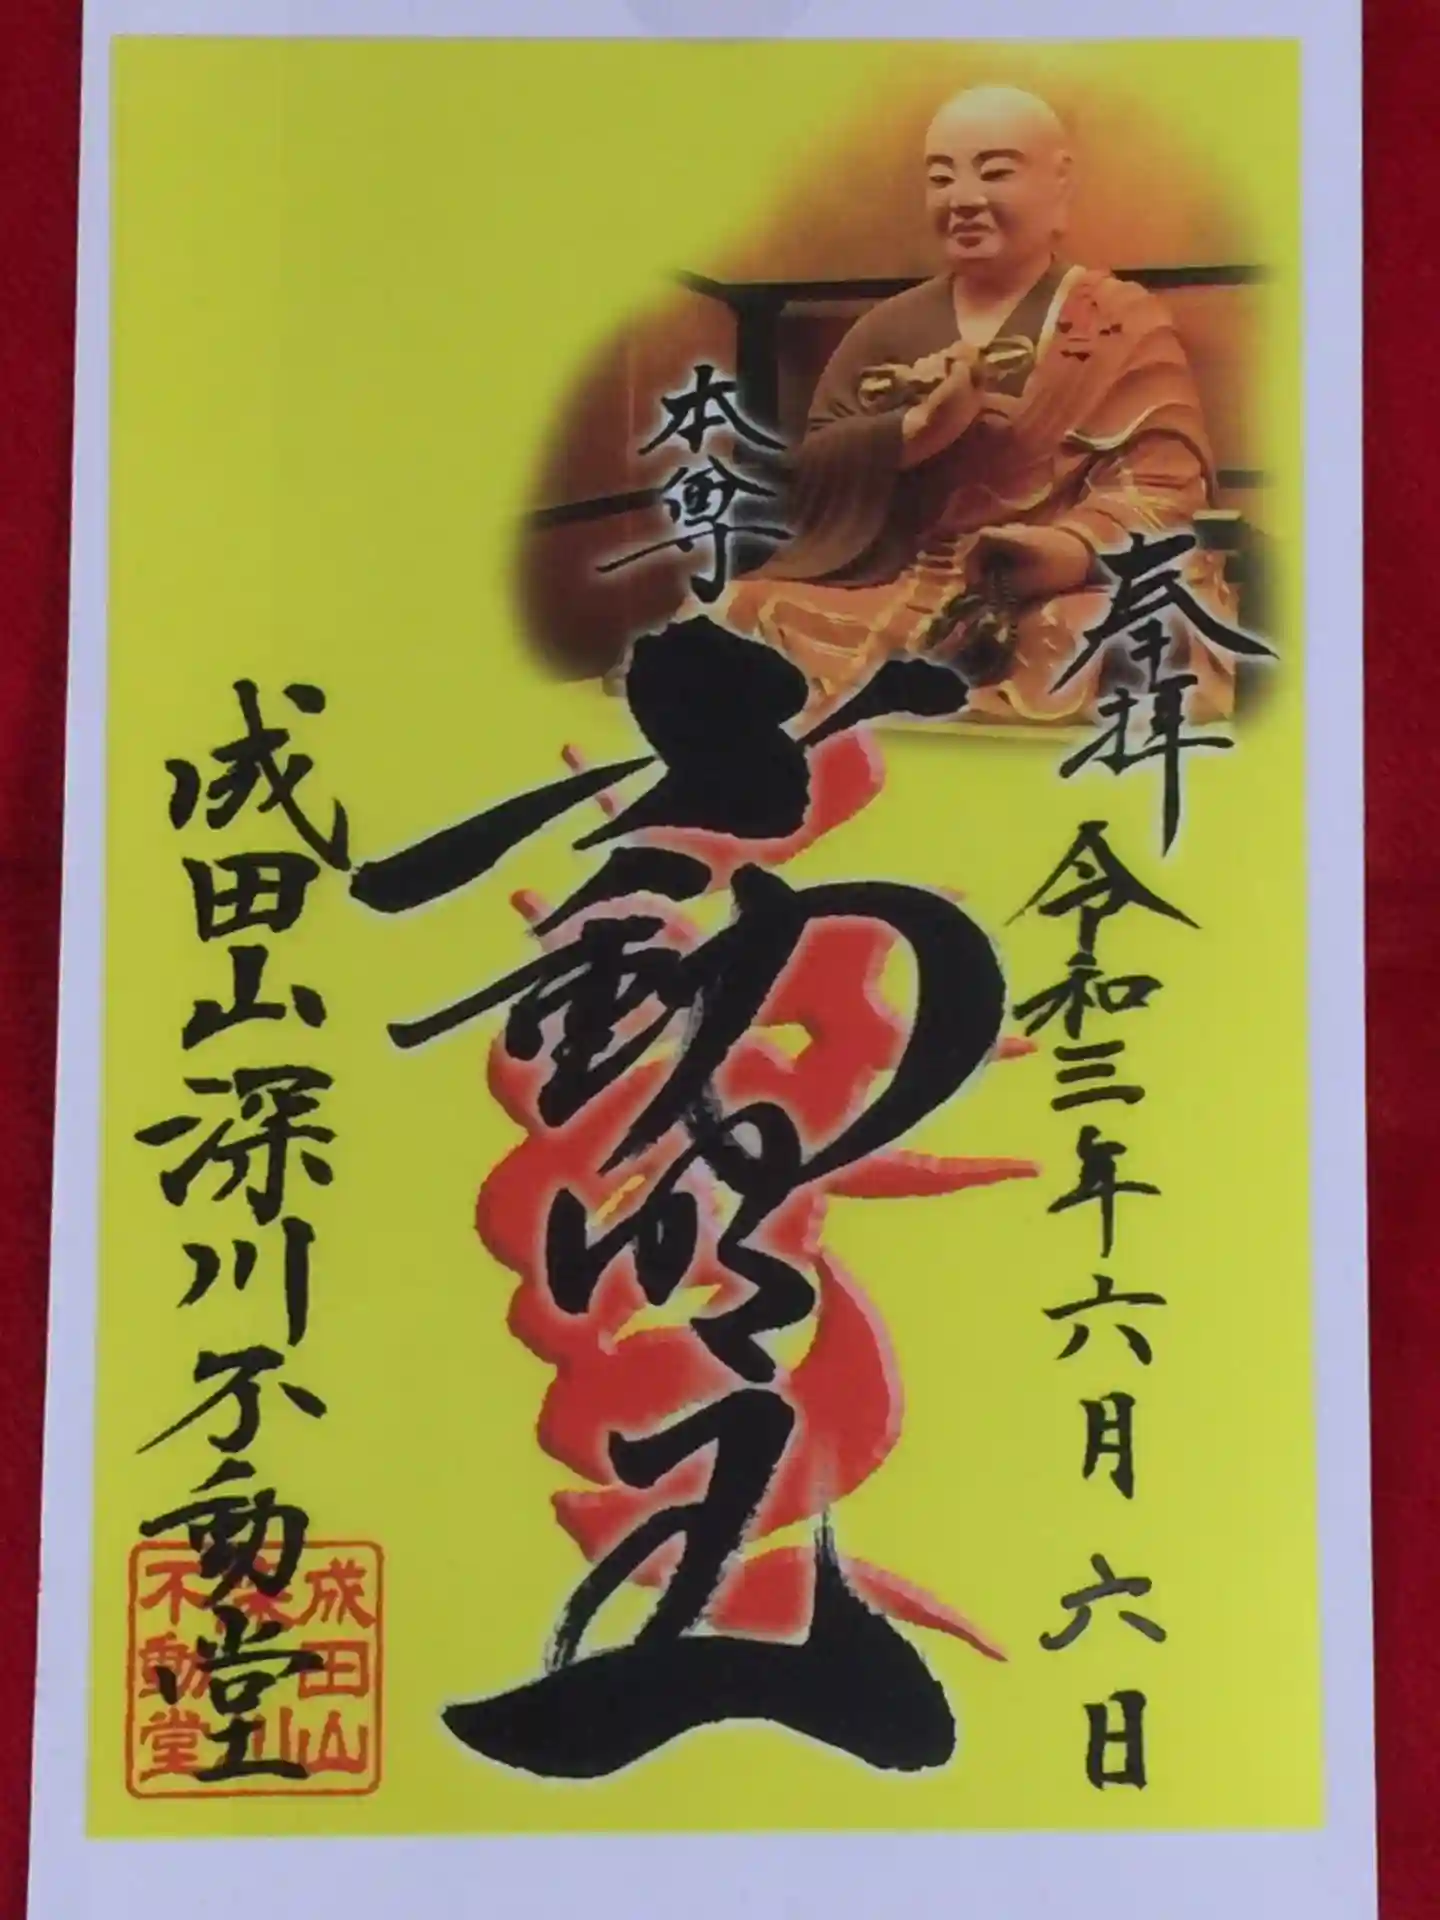 奉拝
令和三年六月六日
本尊
不動明王
成田山深川不動堂
成田山
深川
不動堂